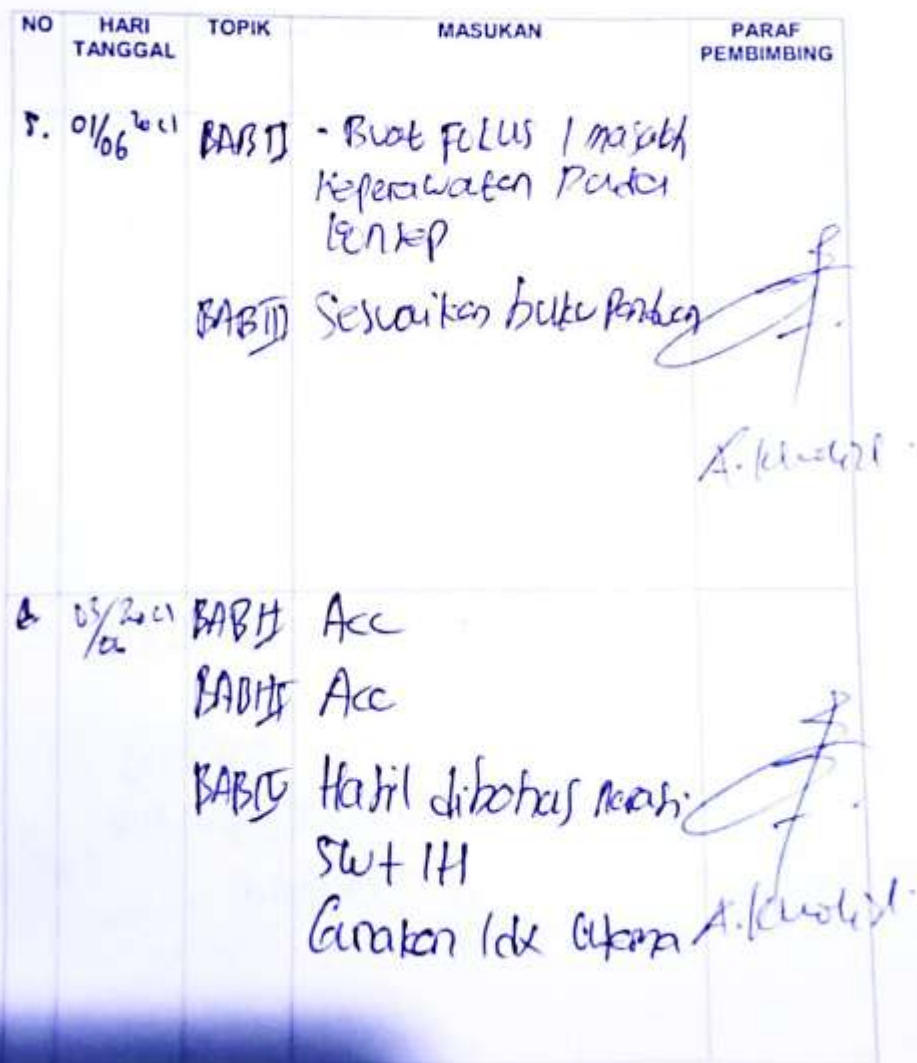 NO HARI TANGGAL TOPIK MASUKAN PARAF PEMBIMBING
5. 01/06 2021 BAB II - Buat FOKUS 1 masalah
keperawatan pada
konsep
BAB III Sesuaikan buku panduan
A. Kholid
6 2021 BAB II Acc
BAB III Acc
BAB IV Hasil dibahas narasi
5W + 1H
Gunakan 1 dx utama A. Kholid